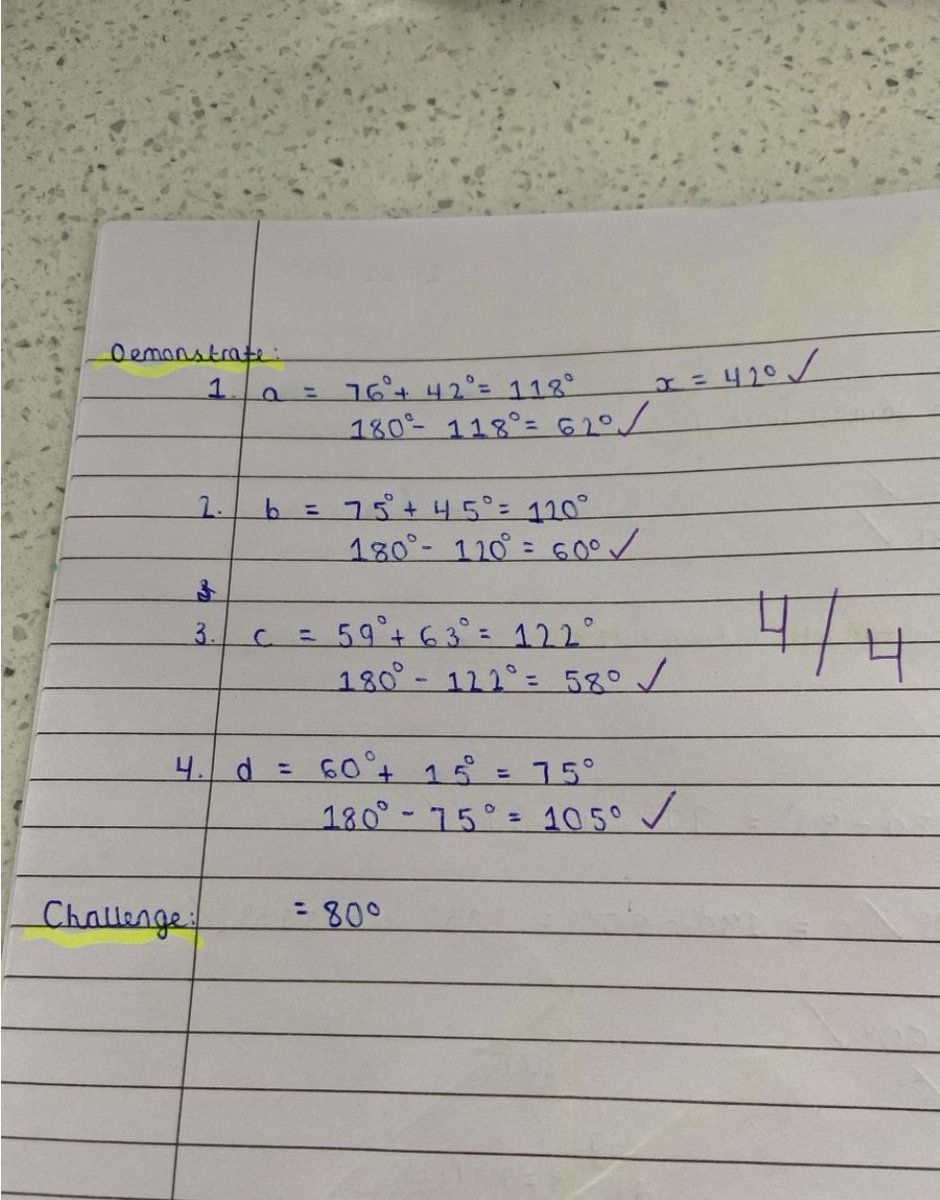 Demonstrate:
1. a = 76°+ 42°= 118° x = 42° ✓
180°- 118°= 62° ✓
2. b = 75°+ 45°= 120°
180°- 120° = 60° ✓
3
3. c = 59°+ 63°= 122°
4/4
180°- 122°= 58° ✓
4. d = 60°+ 15° = 75°
180°- 75° = 105° ✓
Challenge: = 80°